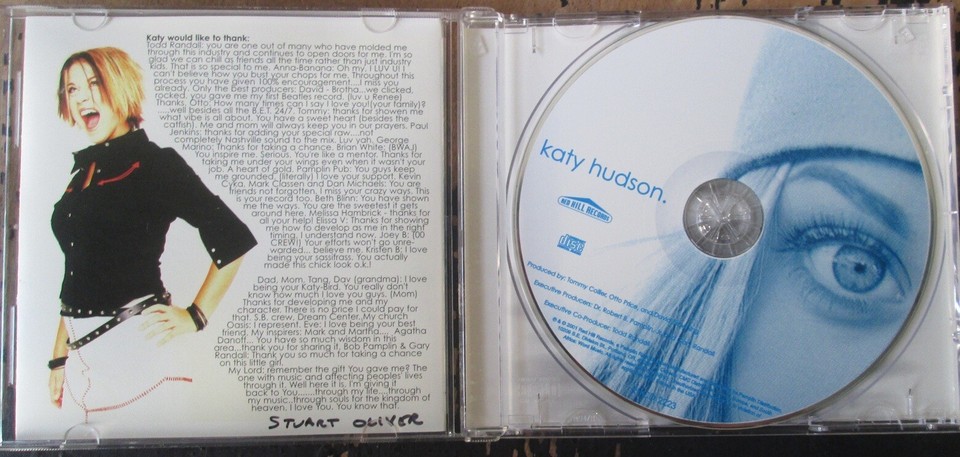 Katy would like to thank:
Todd Randall: you are one out of many who have molded me
through this industry and continues to open doors for me. I'm so
glad we can chill as friends all the time rather than just industry
kids. That is so special to me. Anna-Banana: Oh my, I LUV U! I
can't believe how you bust your chops for me. Throughout this
process you have given 100% encouragement....I miss you
already. Only the best producers: David - Brotha...we clicked,
rocked, you gave me my first Beatles record. (luv u Renee)
Thanks. Otto: How many times can I say I love you!(your family)?
...well besides all the B.E.T. 24/7. Tommy: thanks for showen me
what vibe is all about. You have a sweet heart (besides the
catfish). Me and mom will always keep you in our prayers. Paul
Jenkins: thanks for adding your special raw....not
completely Nashville sound to the mix. Luv yah. George
Marino: Thanks for taking a chance. Brian White: (BWAJ)
You inspire me. Serious. You're like a mentor. Thanks for
taking me under your wings even when it wasn't your
job. A heart of gold. Pamplin Pub: You guys keep
me grounded, (literally) I love your support. Kevin
Cyka, Mark Classen and Dan Michaels: You are
friends not forgotten. I miss your crazy ways. This
is your record too. Beth Blinn: You have shown
me the ways. You are the sweetest it gets
around here. Melissa Hambrick - thanks for
all your help! Elissa V: Thanks for showing
me how to develop as me in the right
timing. I understand now. Joey B: (00
CREW!) Your efforts won't go unre-
warded... believe me. Kristen B: I love
being your sassifrass. You actually
made this chick look o.k.!
Dad, Mom, Tang, Dav (grandma): I love
being your Katy-Bird. You really don't
know how much I love you guys. (Mom)
Thanks for developing me and my
character. There is no price I could pay for
that. S.B. crew, Dream Center, My church
Oasis: I represent. Eve: I love being your best
friend. My inspirers: Mark and Martha..., Agatha
Danoff... You have so much wisdom in this
area...thank you for sharing it. Bob Pamplin & Gary
Randall: Thank you so much for taking a chance
on this little girl.
My Lord: remember the gift You gave me? The
one with music and affecting peoples' lives
through it. Well here it is. I'm giving it
back to You.......through my life....through
my music..through souls for the kingdom of
heaven. I love You. You know that.
STUART OLIVER
katy hudson.
RED HILL RECORDS
disc
Produced by: Tommy Collier, Otto Price, and David
Executive Producers: Dr. Robert B. Pamplin,
Randall
Executive Co-Producer: Todd Randall